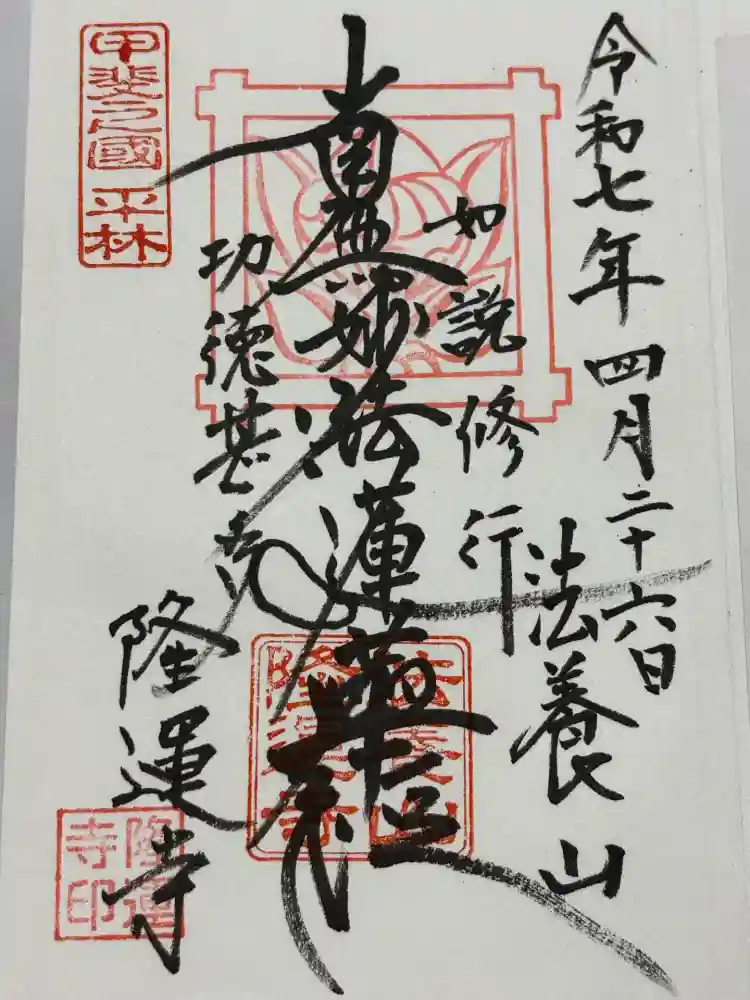 令和七年四月二十六日
法養山
如説修行
南無妙法蓮華経
功徳甚多
隆運寺
甲斐之國 平林
法養山
隆運寺
隆運
寺印